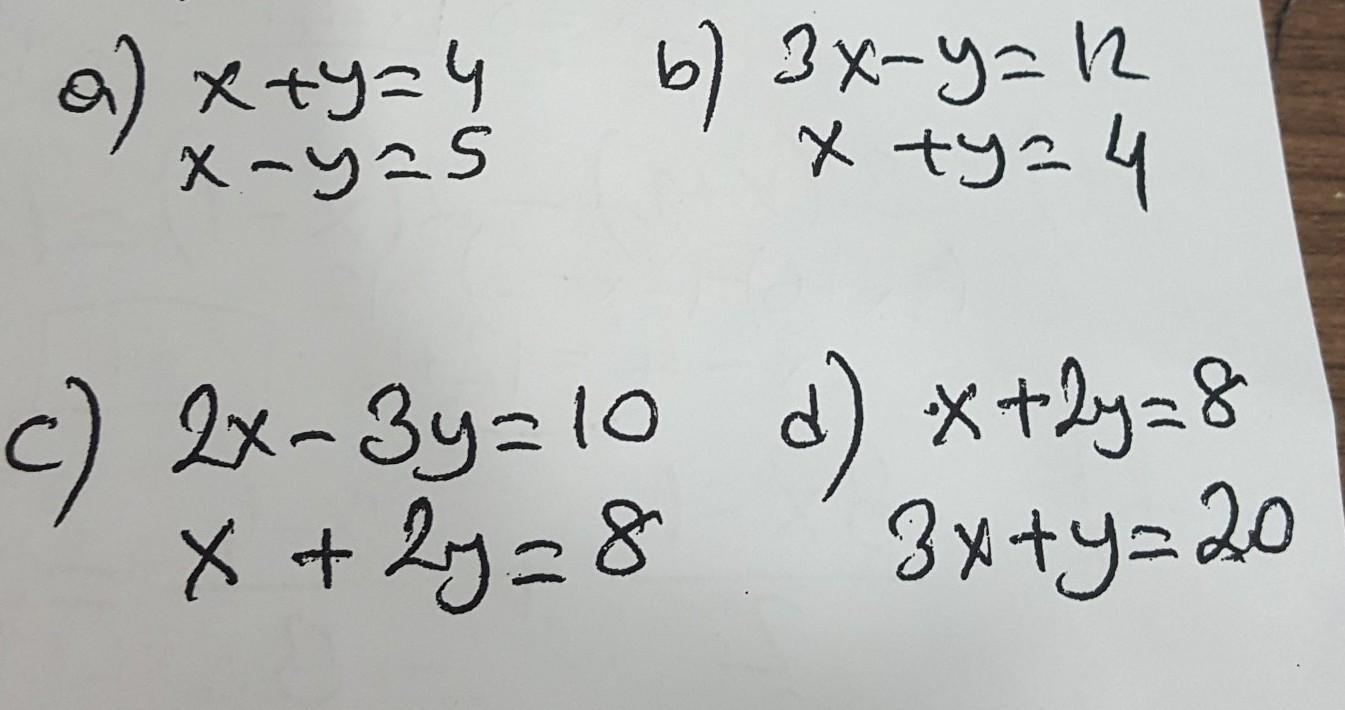 a) x + y = 4
x - y = 5
b) 3x - y = 12
x + y = 4
c) 2x - 3y = 10
x + 2y = 8
d) x + 2y = 8
3x + y = 20